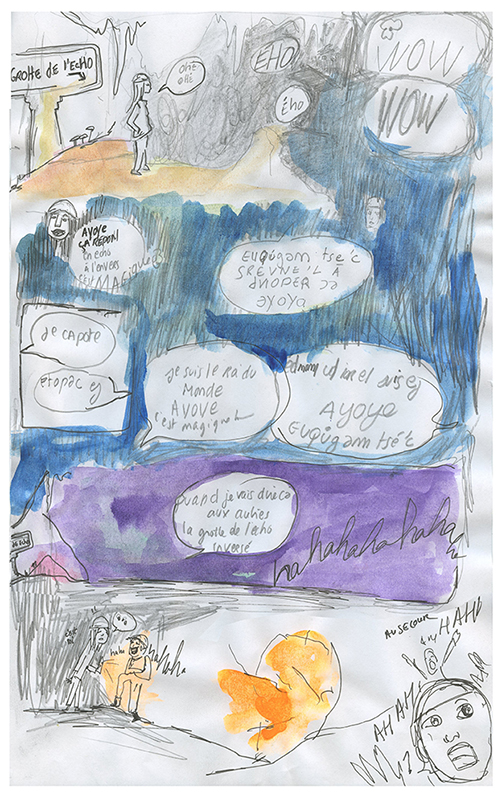 GROTTE DE L'ECHO
OHÉ
OHÉ
ÉHO
ÉHO
WOW
WOW
AYOYE
ÇA RÉPOND
en écho
à l'envers
C'est MAGIQUE
EUQIGAM tse'c
SREVNE'L À
DNOPER ac
eyoya
Je capote
etopac ej
je suis le Roi du
Monde
AYOYE
c'est magique
AYOYE
EUQIGAM tsé'c
Quand je vais dire ça
aux autres
la grotte de l'écho
inversé
hahahahahahaha
haha
hahaha
AU SECOUR
HAHA
AHAHA